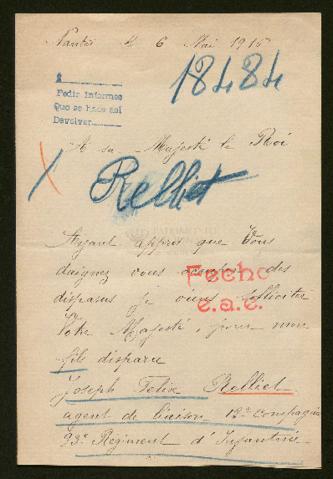 Nantes le 6 Mai 1916
18484
Pedir Informes
Que se hace así
Devolver
A sa Majesté le Roi
Relliet
Ayant appris que Vous
daignez vous occuper des
disparus je viens solliciter
Votre Majesté, pour mon
fils disparu
Fecho
c.a.e.
Joseph Felix Relliet
agent de liaison 12e Compagnie
93e Régiment d'Infanterie